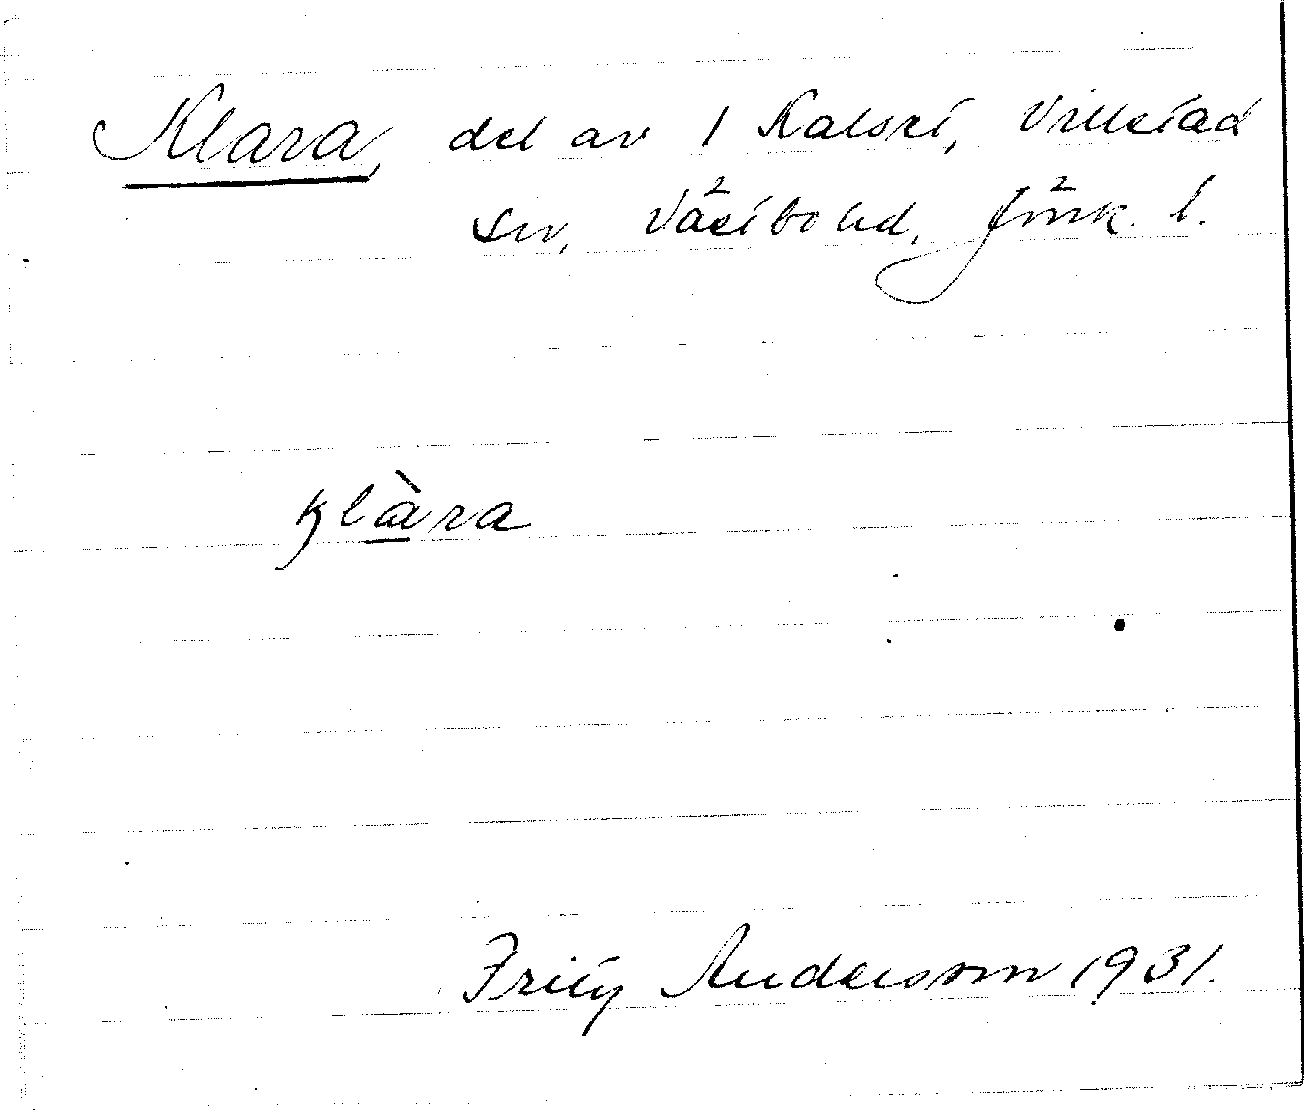 Klara, del av 1 Kalset, Villstad
sn, Västbo hd, Jönk. l.
klàra
Fritz Andersson 1931.